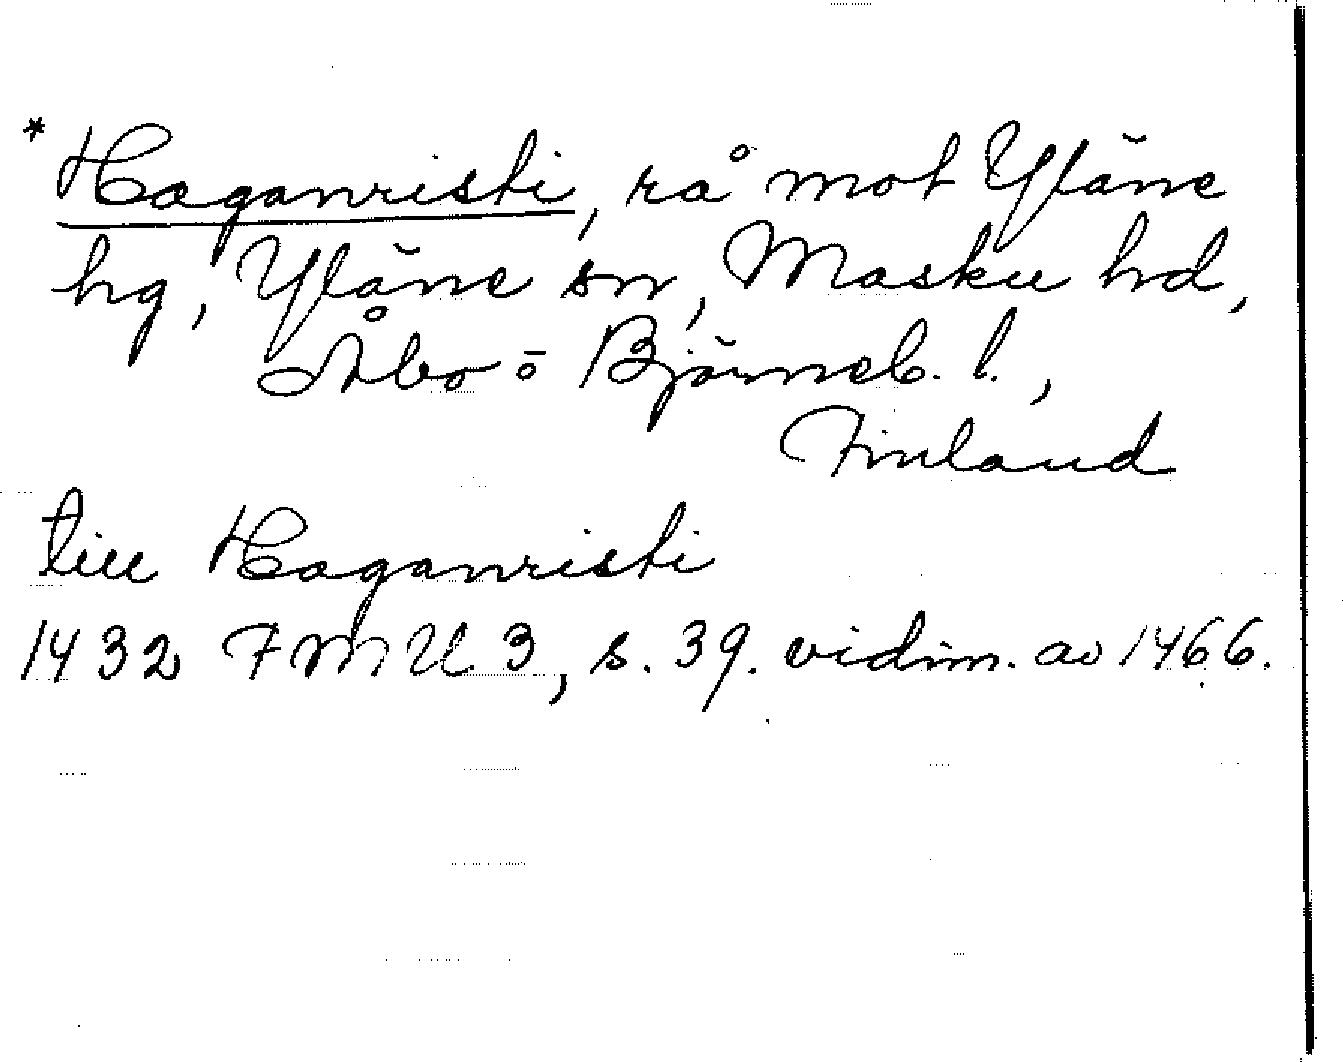 * Haganristi, rå mot Yläne
hg, Yläne sn, Masku hd,
Åbo o Björneb. l.,
Finland
till Haganristi
1432 FMU 3, s. 39. vidim. av 1466.